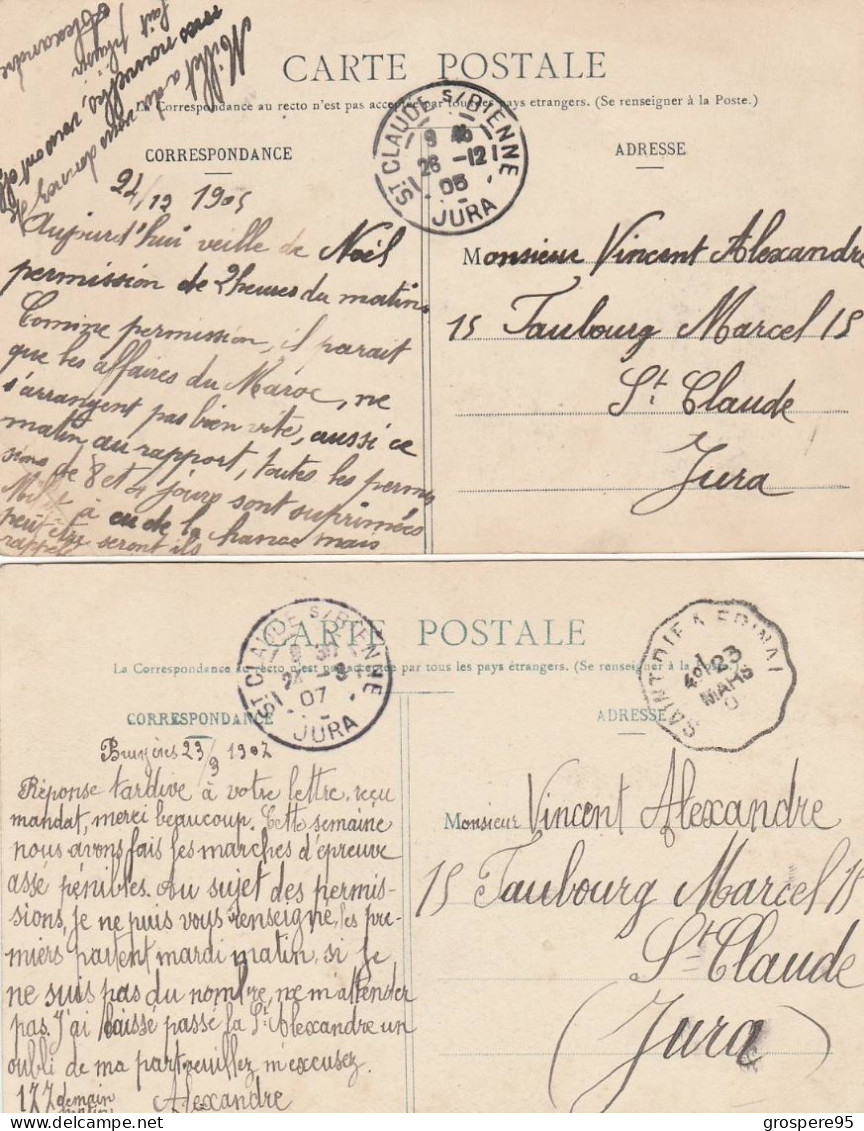 Millet a dû vous donner
mes nouvelles, vous ont
fait plaisir
Alexandre
CARTE POSTALE
La Correspondance au recto n'est pas acceptée par tous les pays etrangers. (Se renseigner à la Poste.)
CORRESPONDANCE
ADRESSE
ST CLAUDE S/BIENNE
26 -12
05
JURA
24/12 1905
Aujourd'hui veille de Noël
permission de 2 heures du matin.
Comme permission, il parait
que les affaires du Maroc, ne
s'arrangent pas bien vite, aussi ce
matin au rapport, toutes les permis
sions de 8 et 4 jours sont suprimées
à eu de la chance mais
peut être seront ils
rappelé
Monsieur Vincent Alexandre
15 Faubourg Marcel 15
St Claude
Jura
CARTE POSTALE
La Correspondance au recto n'est pas acceptée par tous les pays étrangers. (Se renseigner à la Poste.)
CORRESPONDANCE
ADRESSE
ST CLAUDE S/BIENNE
07
JURA
SAINT-DIE A EPINAL
23
MARS
Bruyères 23/3 1907
Réponse tardive à votre lettre, reçu
mandat, merci beaucoup. Cette semaine
nous avons fais les marches d'épreuve
assé pénibles. Au sujet des permis-
sions, je ne puis vous renseigne, les pre-
miers partent mardi matin, si je
ne suis pas du nombre, ne m'attender
pas. J'ai laissé passé la St Alexandre un
oubli de ma part veuillez m'excusez.
177 demain
matin
Alexandre
Monsieur Vincent Alexandre
15 Faubourg Marcel 15
St Claude
(Jura)
https://www.delcampe.net
grospere95